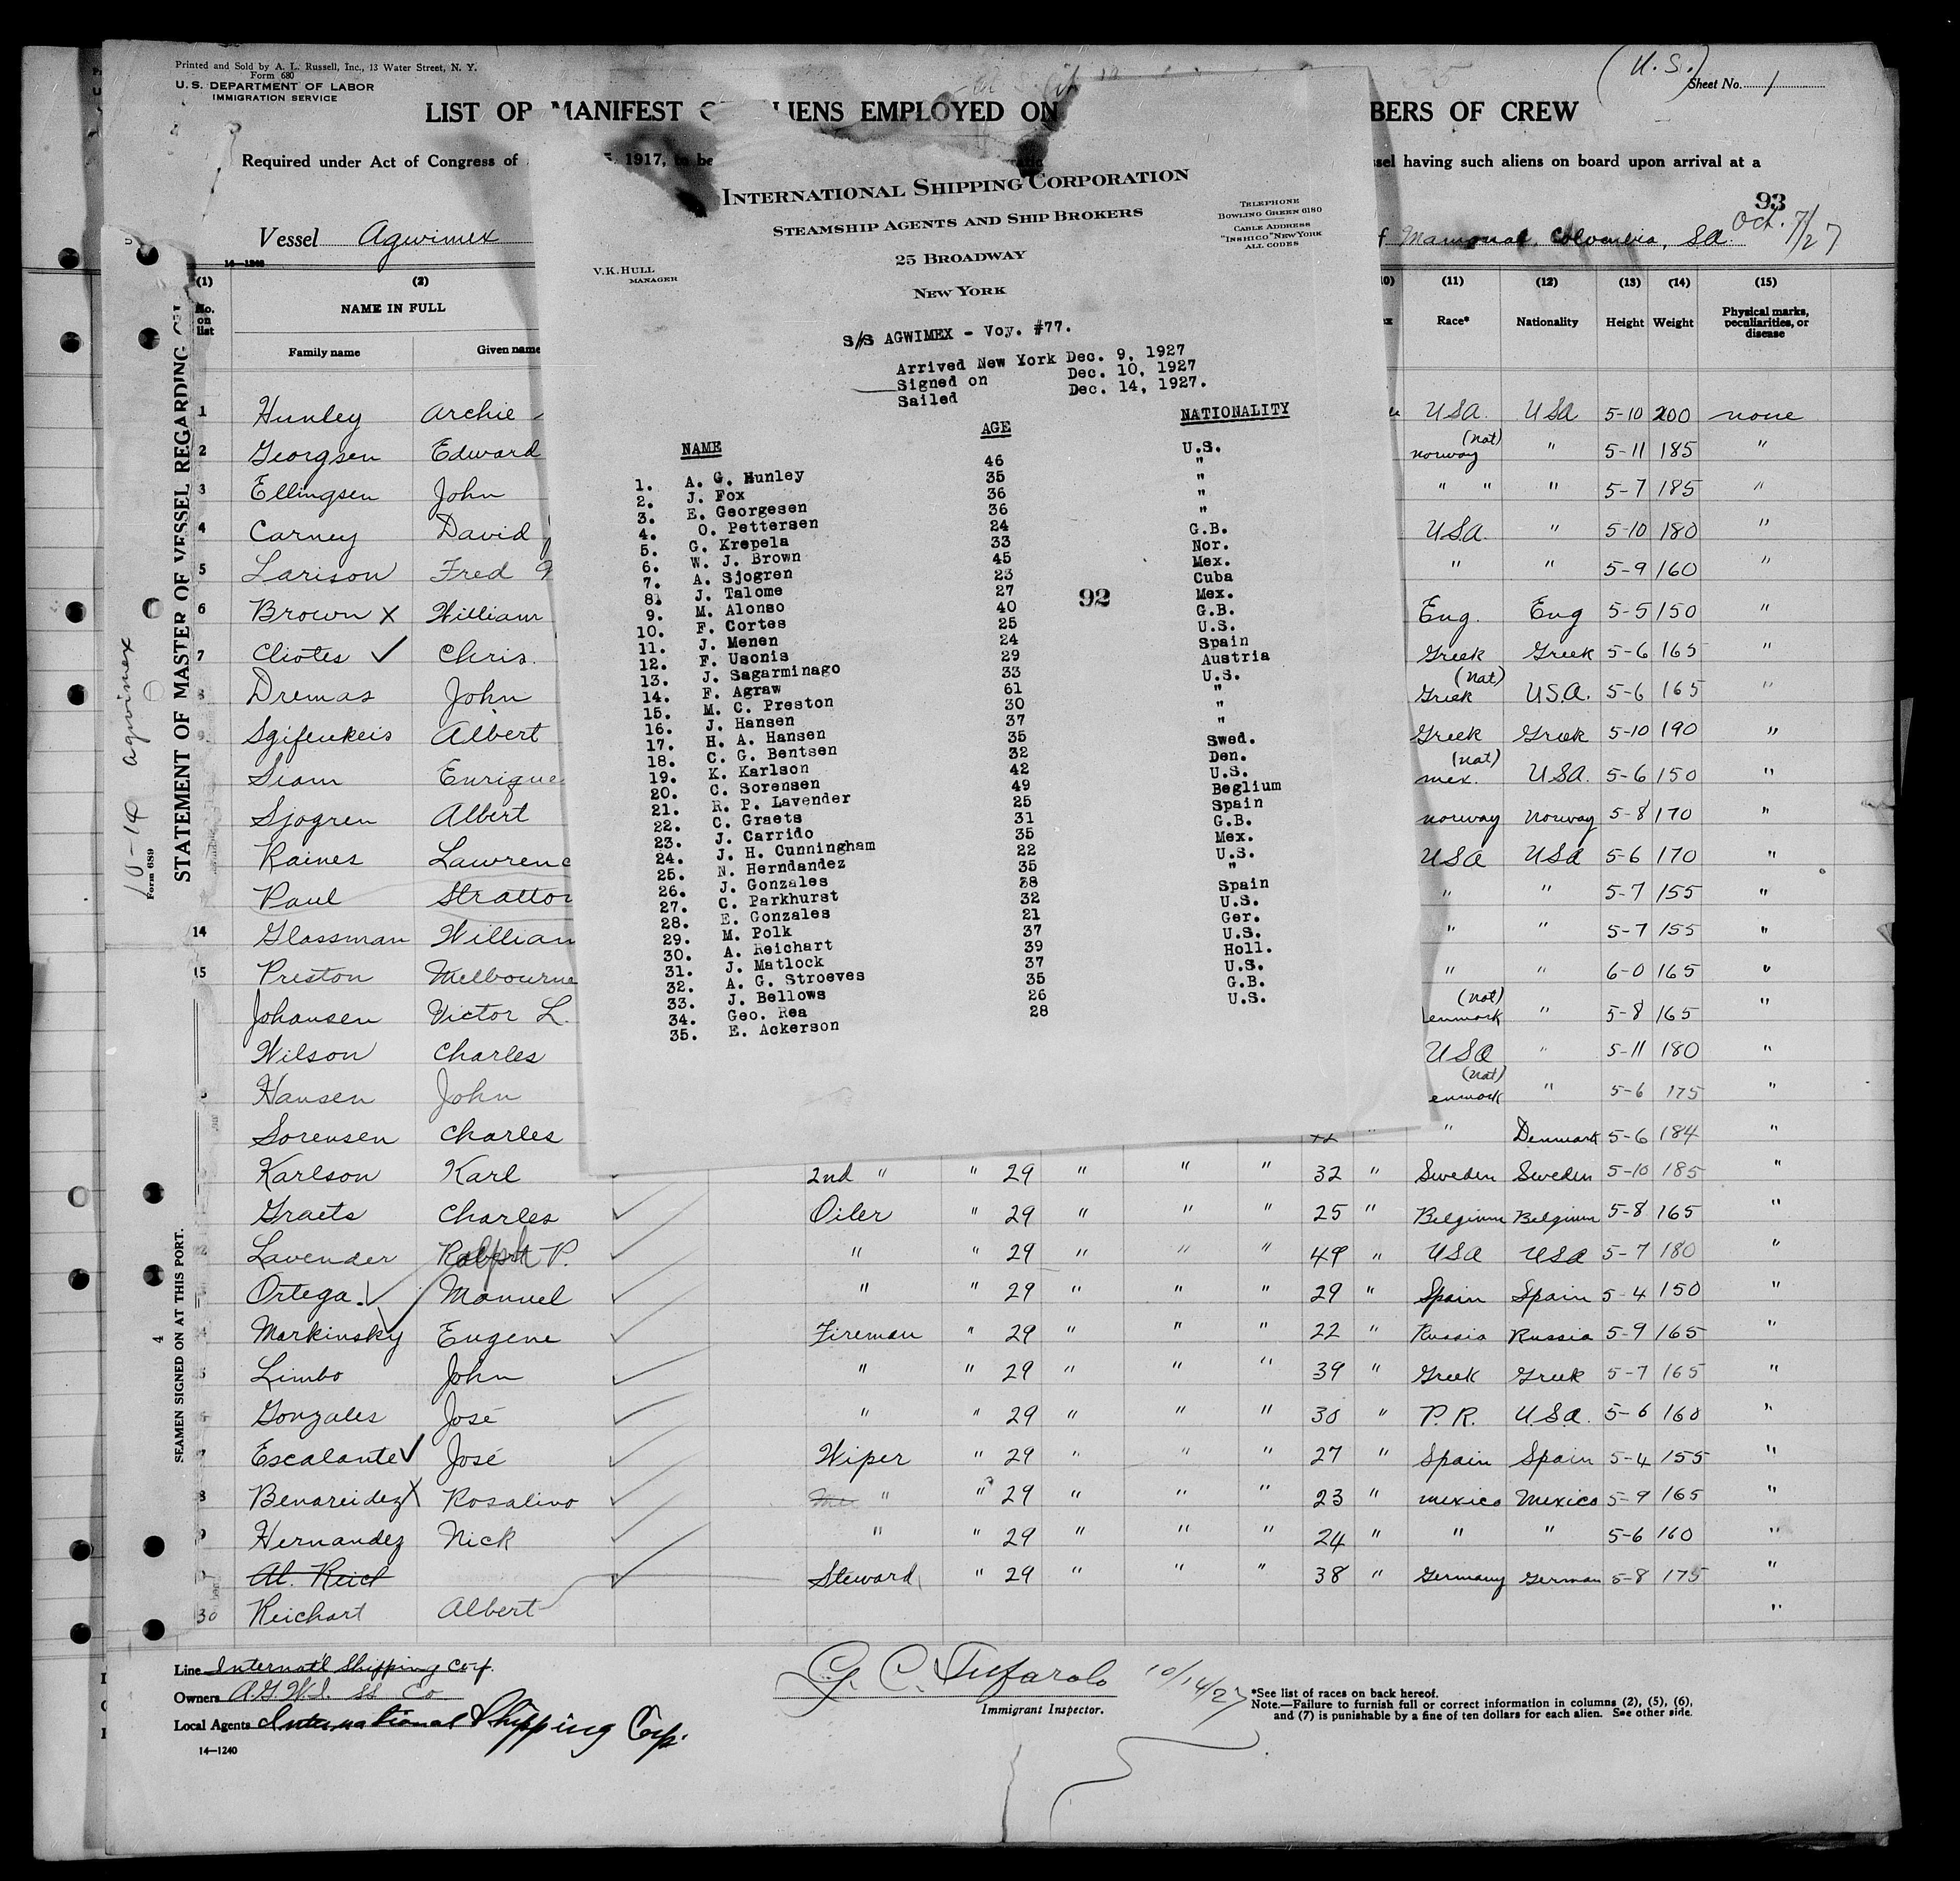 Printed and Sold by A. L. Russell, Inc., 13 Water Street, N. Y.
Form 680
U. S. DEPARTMENT OF LABOR
IMMIGRATION SERVICE
(U. S.)
Sheet No. 1
LIST OR MANIFEST OF ALIENS EMPLOYED ON BERS OF CREW
Required under Act of Congress of 1917, to be sel having such aliens on board upon arrival at a
93
Vessel Agwimex f Mamonal, Colombia, SA. Oct. 7/27
14-1240
(1) (2) (11) (12) (13) (14) (15)
No. on list NAME IN FULL Race* Nationality Height Weight Physical marks, peculiarities, or disease
Family name Given name
INTERNATIONAL SHIPPING CORPORATION
STEAMSHIP AGENTS AND SHIP BROKERS
TELEPHONE
BOWLING GREEN 6180
CABLE ADDRESS
"INSHICO" NEW YORK
ALL CODES
25 BROADWAY
V. K. HULL
MANAGER
NEW YORK
S/S AGWIMEX - Voy. #77.
Arrived New York Dec. 9, 1927
Signed on Dec. 10, 1927
Sailed Dec. 14, 1927.
NAME AGE NATIONALITY
1. A. G. Hunley 46 U.S.
2. J. Fox 35 "
3. E. Georgesen 36 "
4. O. Pettersen 36 "
5. G. Krepela 24 G.B.
6. W. J. Brown 33 Nor.
7. A. Sjogren 45 Mex.
8. J. Talome 23 Cuba
9. M. Alonso 27 Mex.
10. F. Cortes 40 G.B.
11. J. Menen 25 U.S.
12. F. Usonis 24 Spain
13. J. Sagarminago 29 Austria
14. F. Agraw 33 U.S.
15. M. C. Preston 61 "
16. J. Hansen 30 "
17. H. A. Hansen 37 "
18. C. G. Bentsen 35 Swed.
19. K. Karlson 32 Den.
20. C. Sorensen 42 U.S.
21. R. P. Lavender 49 Beglium
22. C. Graets 25 Spain
23. J. Carrido 31 G.B.
24. J. H. Cunningham 35 Mex.
25. N. Herndandez 22 U.S.
26. J. Gonzales 35 "
27. C. Parkhurst 38 Spain
28. E. Gonzales 32 U.S.
29. M. Polk 21 Ger.
30. A. Reichart 37 U.S.
31. J. Matlock 39 Holl.
32. A. G. Stroeves 37 U.S.
33. J. Bellows 35 G.B.
34. Geo. Rea 26 U.S.
35. E. Ackerson 28
92
1 Hunley Archie USA. USA 5-10 200 none
2 Georgsen Edward norway (nat) " 5-11 185 "
3 Ellingsen John " " " 5-7 185 "
4 Carney David USA. " 5-10 180 "
5 Larison Fred " " 5-9 160 "
6 Brown X William Eng. Eng 5-5 150 "
7 Cliotes ✓ Chris. Greek Greek 5-6 165 "
8 Dremas John Greek (nat) U.S.A. 5-6 165 "
9 Sgifeukeis Albert Greek Greek 5-10 190 "
Siam Enrique mex. (nat) USA. 5-6 150 "
Sjogren Albert norway Norway 5-8 170 "
Raines Lawrenc USA USA 5-6 170 "
Paul Stratton " " 5-7 155 "
14 Glassman William " " 5-7 155 "
15 Preston Melbourne " " 6-0 165 "
Johansen Victor L. enmark (nat) " 5-8 165 "
Wilson Charles USA " 5-11 180 "
Hansen John enmark (nat) " 5-6 175 "
Sorensen Charles 42 " " Denmark 5-6 184 "
Karlson Karl 2nd " " 29 " " " 32 " Sweden Sweden 5-10 185 "
Graets Charles Oiler " 29 " " " 25 " Belgium Belgium 5-8 165 "
Lavender Ralph P. " " 29 " " " 49 " USA USA 5-7 180 "
Ortega. Manuel " " 29 " " " 29 " Spain Spain 5-4 150 "
Markinsky Eugene Fireman " 29 " " " 22 " Russia Russia 5-9 165 "
Limbo John " " 29 " " " 39 " Greek Greek 5-7 165 "
Gonzales José " " 29 " " " 30 " P.R. U.S.A. 5-6 160 "
Escalante ✓ José Wiper " 29 " " " 27 " Spain Spain 5-4 155 "
Benareidez X Rosalino " " 29 " " " 23 " mexico Mexico 5-9 165 "
Hernandez Nick " " 29 " " " 24 " " " 5-6 160 "
Al. Reich Steward " 29 " " " 38 " Germany German 5-8 175 "
30 Reichart Albert "
Line Internat'l Shipping Corp.
Owners A.G.W.I. SS Co
Local Agents International Shipping Corp.
14-1240
10/14/27
Immigrant Inspector.
*See list of races on back hereof.
Note.—Failure to furnish full or correct information in columns (2), (5), (6),
and (7) is punishable by a fine of ten dollars for each alien. See other side.
10-14 Agwimex
Form 689
STATEMENT OF MASTER OF VESSEL REGARDING
4
SEAMEN SIGNED ON AT THIS PORT.